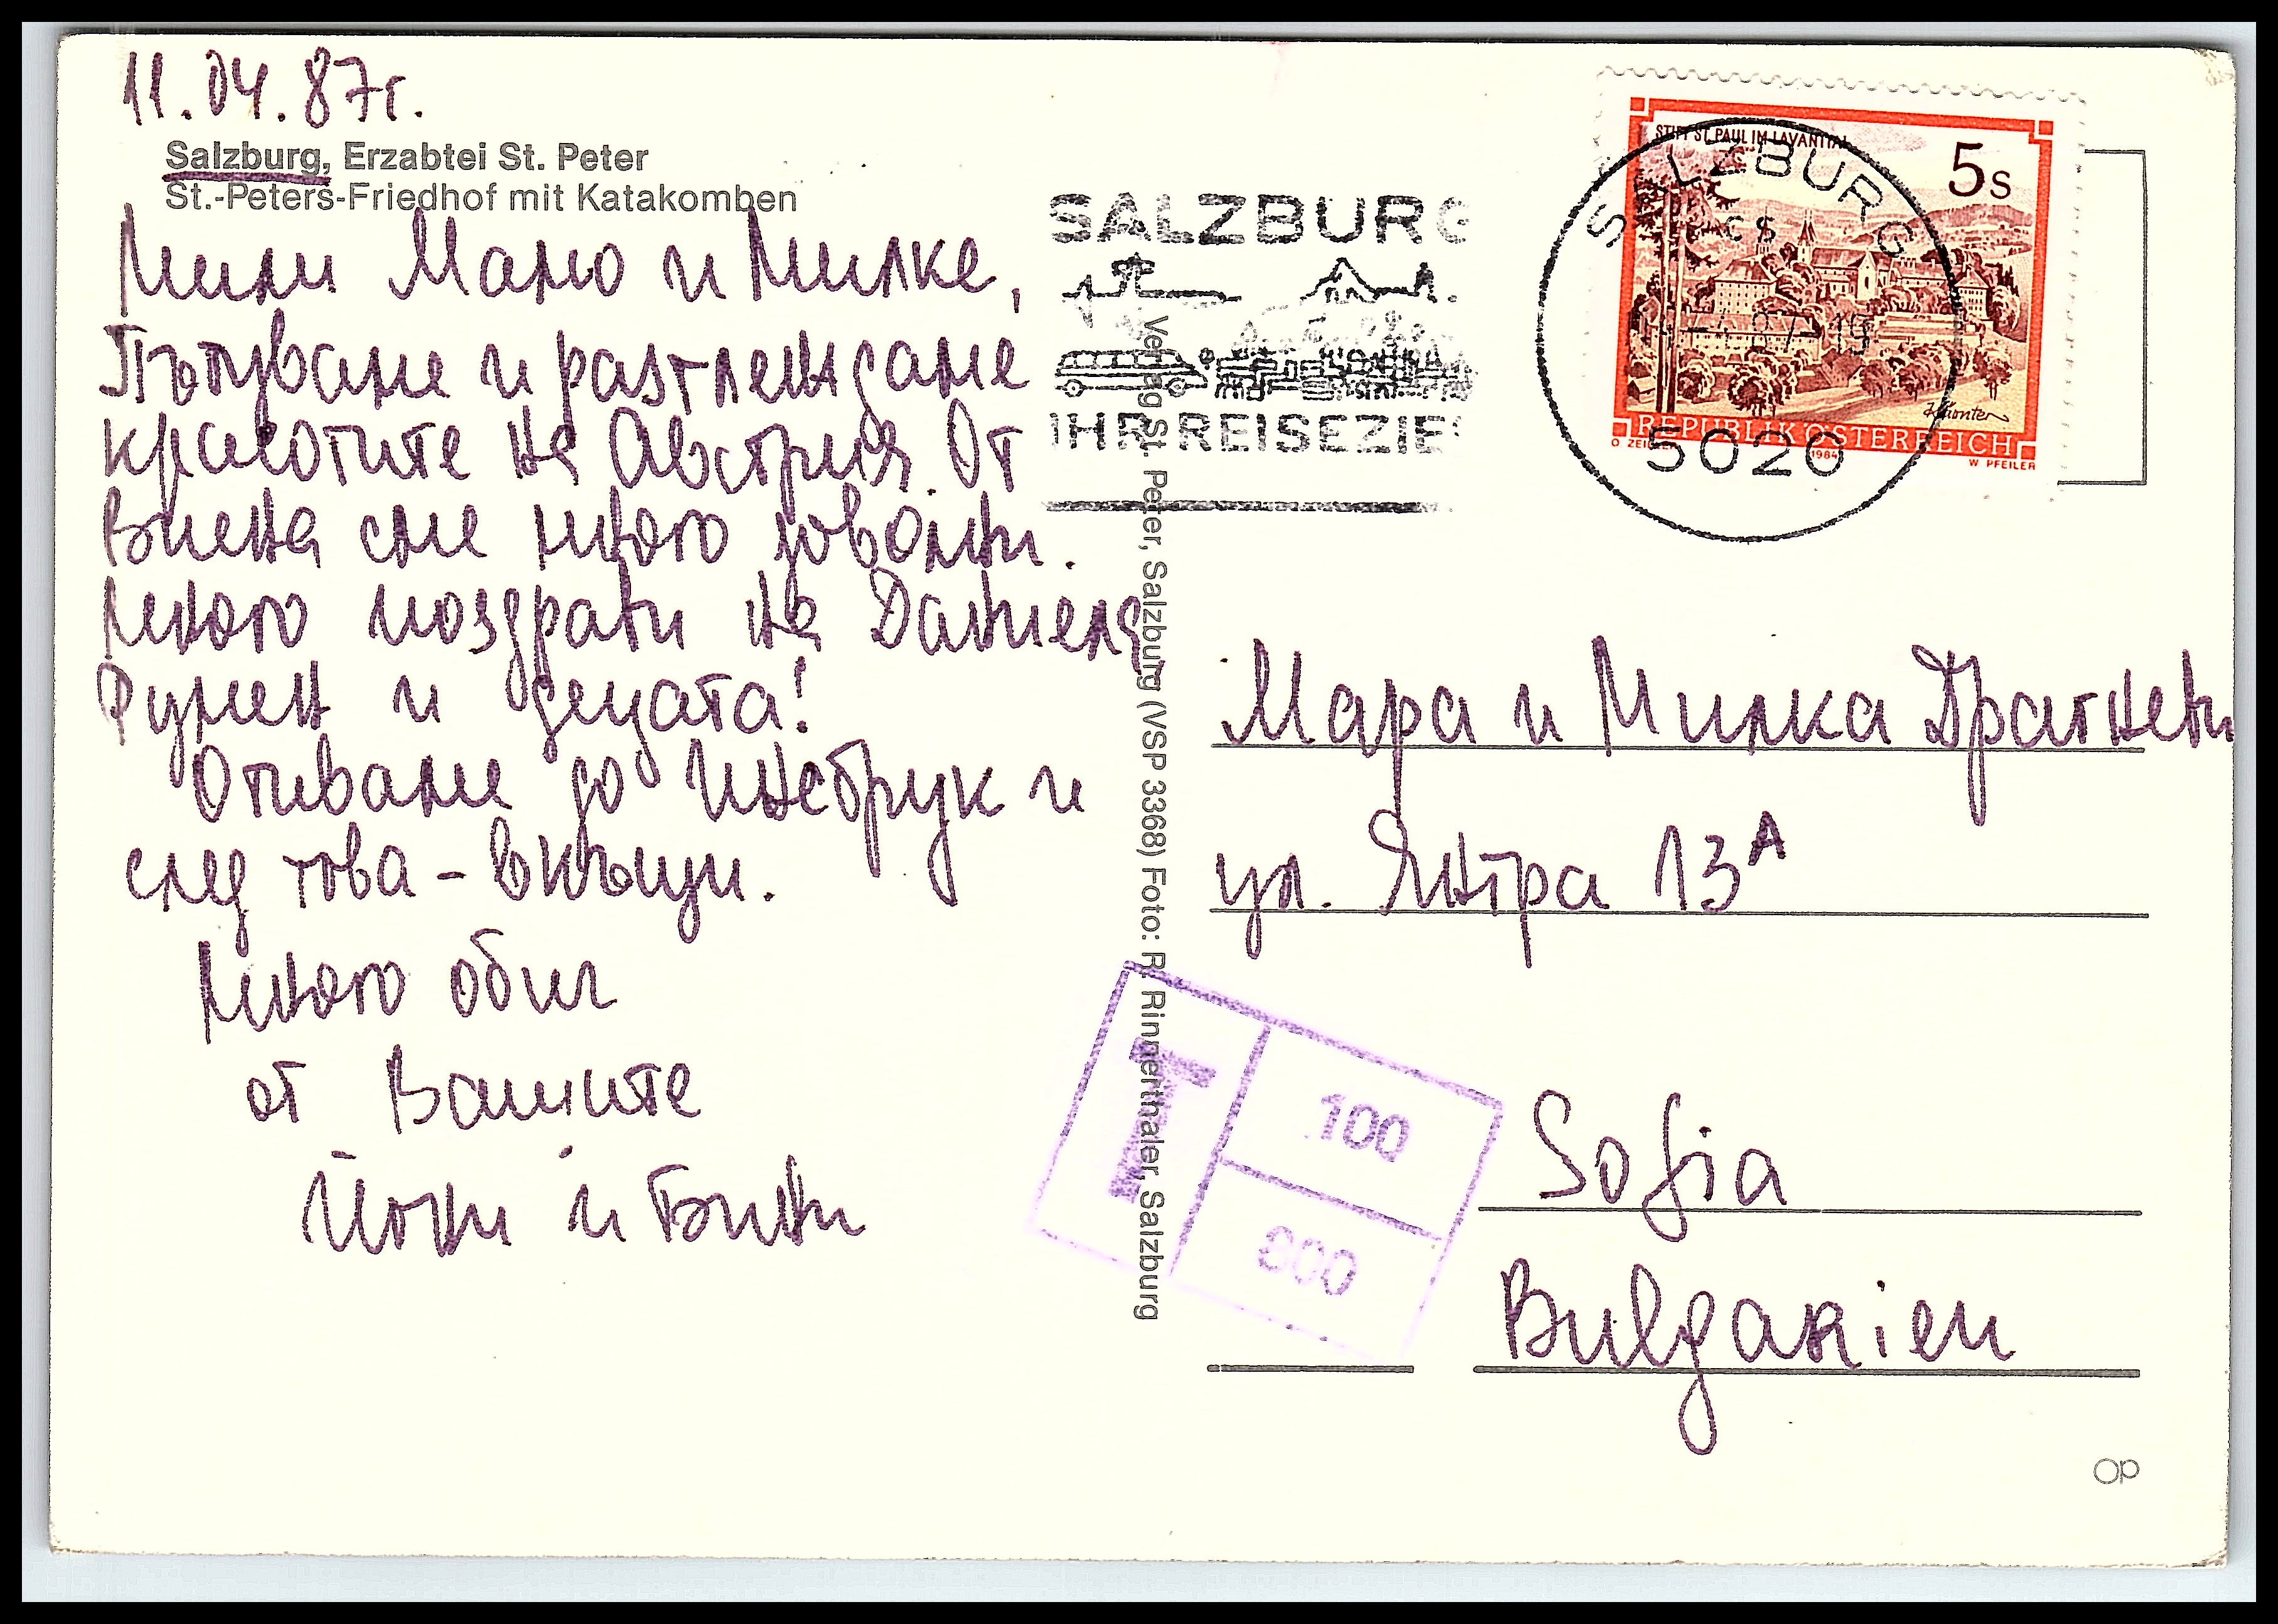 11.04.87г.
Salzburg, Erzabtei St. Peter
St.-Peters-Friedhof mit Katakomben
Мили Мамо и Милке,
Пътуваме и разглеждаме
красотите на Австрия. От
Виена сме много доволни.
Много поздрави на Даниела,
Румен и децата!
Отиваме до Инсбрук и
след това - вкъщи.
Много обич
от Вашите
и Били
SALZBURG
IHR REISEZIEL
Verlag St. Peter, Salzburg (VSP 3368) Foto: R. Rinnerthaler, Salzburg
STIFT ST. PAUL IM LAVANTTAL
5s
Kärnten
REPUBLIK ÖSTERREICH
1984
W. PFEILER
SALZBURG
5020
Мара и Милка Драгневи
ул. Янтра 13А
T
100
600
Sofia
Bulgarien
op